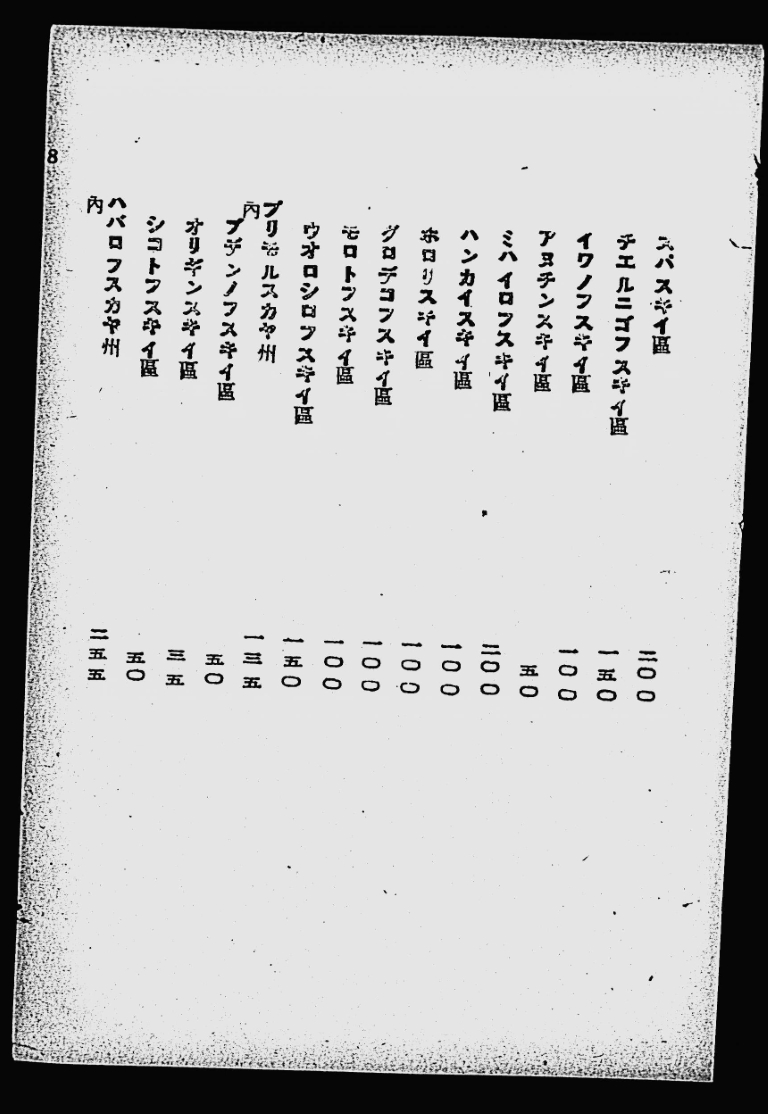 スパスキイ區 二〇〇
チエルニゴフスキイ區 一五〇
イワノフスキイ區 一〇〇
アヌチンスキイ區 五〇
ミハイロフスキイ區 二〇〇
ハンカイスキイ區 一〇〇
ホロリスキイ區 一〇〇
グロデコフスキイ區 一〇〇
モロトフスキイ區 一〇〇
ウオロシロフスキイ區 一五〇
プリモルスカヤ州 一三五
內
ブヂンノフスキイ區 五〇
オリギンスキイ區 三五
シコトフスキイ區 五〇
ハバロフスカヤ州 二五五
內
8